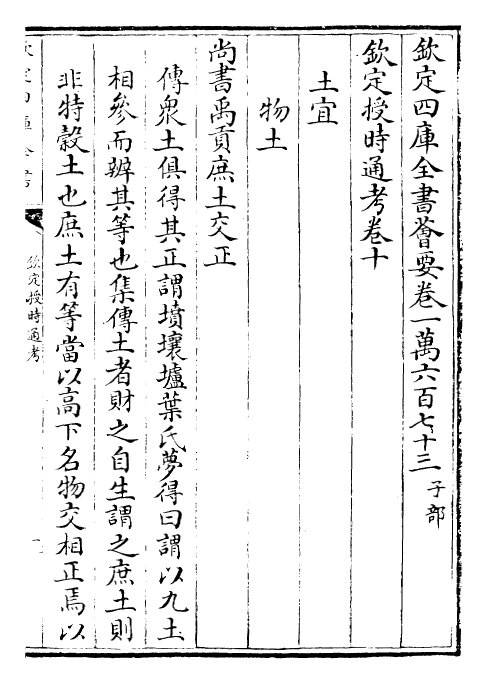 欽定四庫全書薈要卷一萬六百七十三 子部
欽定授時通考卷十
土宜
物土
尚書禹貢庶土交正
傳衆土俱得其正謂墳壤壚葉氏夢得曰謂以九土
相參而辨其等也集傳土者財之自生謂之庶土則
非特穀土也庶土有等當以高下名物交相正焉以
欽定授時通考
一